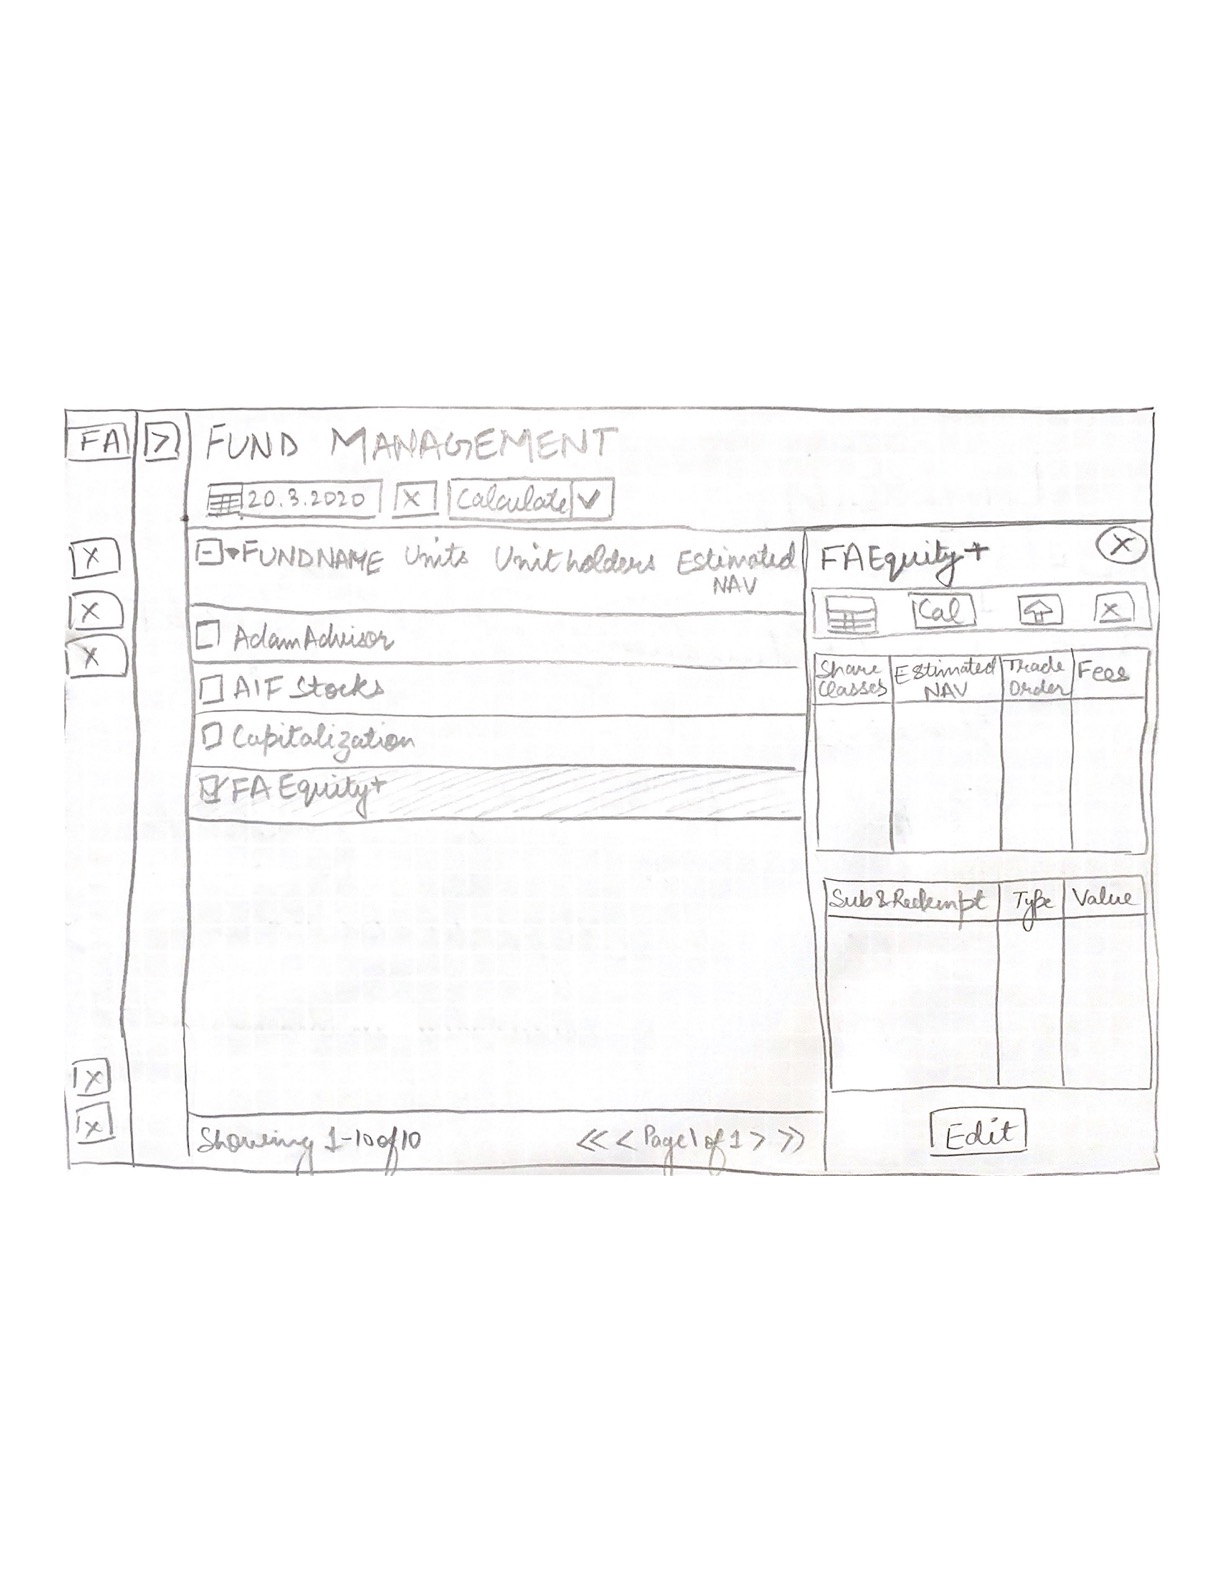 FA
>
FUND MANAGEMENT
20.3.2020 X Calculate
X
X
X
X
X
FUNDNAME Units Unit holders Estimated NAV
Adam Advisor
AIF Stocks
Capitalization
FA Equity+
Showing 1-10 of 10
<< < Page 1 of 1 > >>
FA Equity+ X
Cal X
Share Classes Estimated NAV Trade Order Fees
Sub & Redempt Type Value
Edit